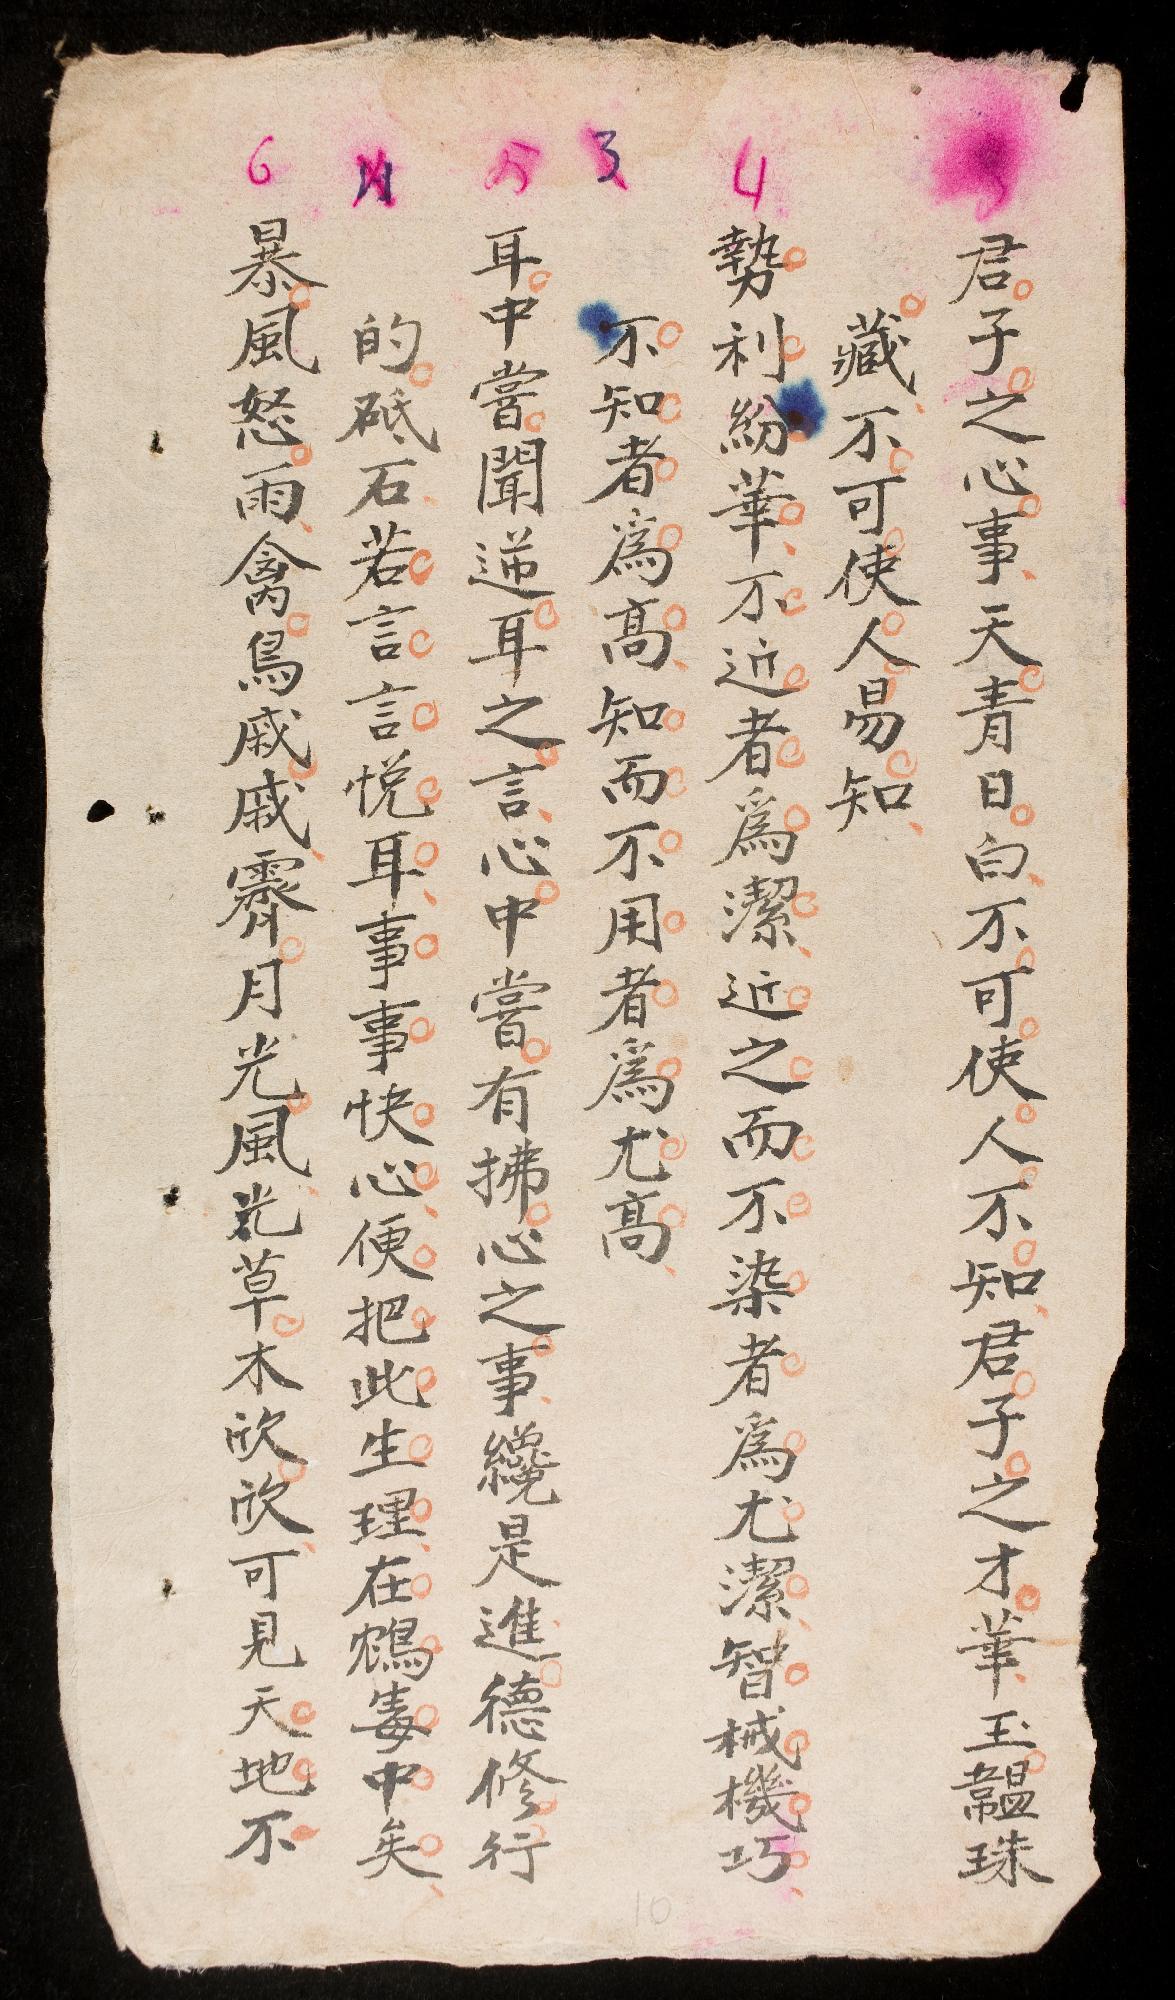 君子之心事天青日白不可使人不知君子之才華玉韞珠
藏不可使人昜知
4
勢利紛華不近者爲潔近之而不染者爲尤潔智械機巧
3
不知者爲髙知而不用者爲尤髙
5
耳中嘗聞逆耳之言心中嘗有拂心之事纔是進德修行
的砥石若言言悅耳事事快心便把此生理在鴆毒中矣
6
暴風怒雨禽鳥戚戚霽月光風草木欣欣可見天地不
10